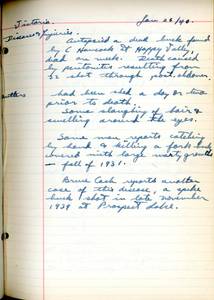 Jan 28/40.
Disease & Injuries.
Autopsied a dead buck found
by C Hancock at Happy Valley,
dead one week. Death caused
by peritonitis resulting from
.22 shot through post. abdomen.
Antlers had been shed a day or two
prior to death.
Some sloughing of hair &
swelling around the eyes.
Some man reports catching
by hand & killing a fork buck
covered with large warty growths
— fall of 1931.
Bruce Cash reports another
case of this disease, a spike
buck shot in late November
1939 at Prospect Lake.